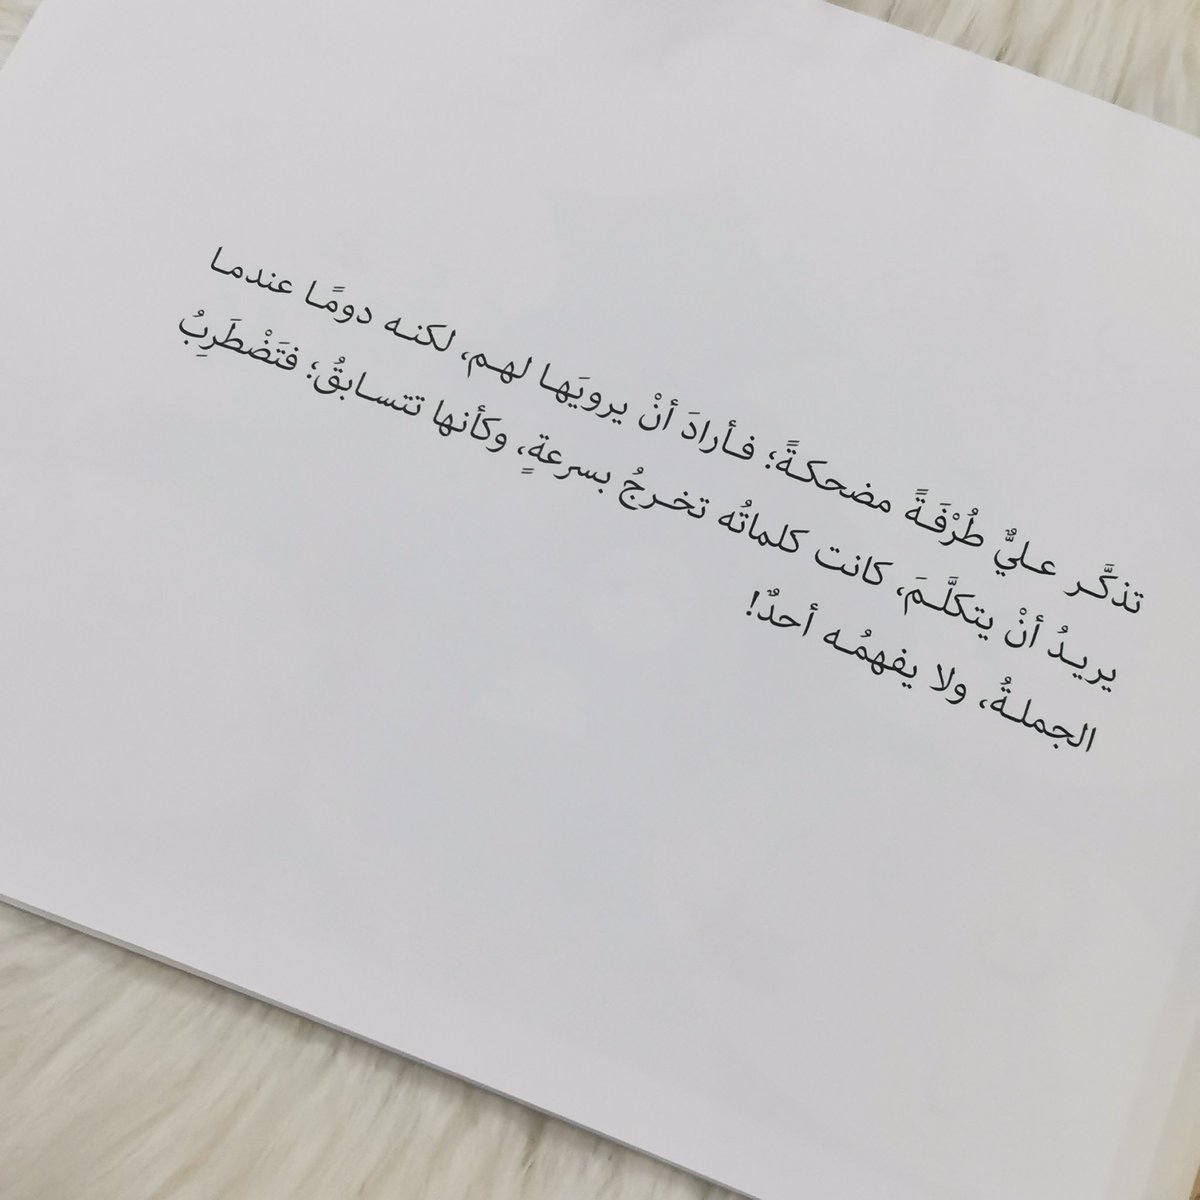 تذكَّر عليٌّ طُرْفَةً مضحكةً؛ فأرادَ أنْ يرويَها لهم، لكنه دومًا عندما
يريدُ أنْ يتكلَّمَ، كانت كلماتُه تخرجُ بسرعةٍ، وكأنها تتسابقُ؛ فتَضْطَرِبُ
الجملةُ، ولا يفهمُه أحدٌ!